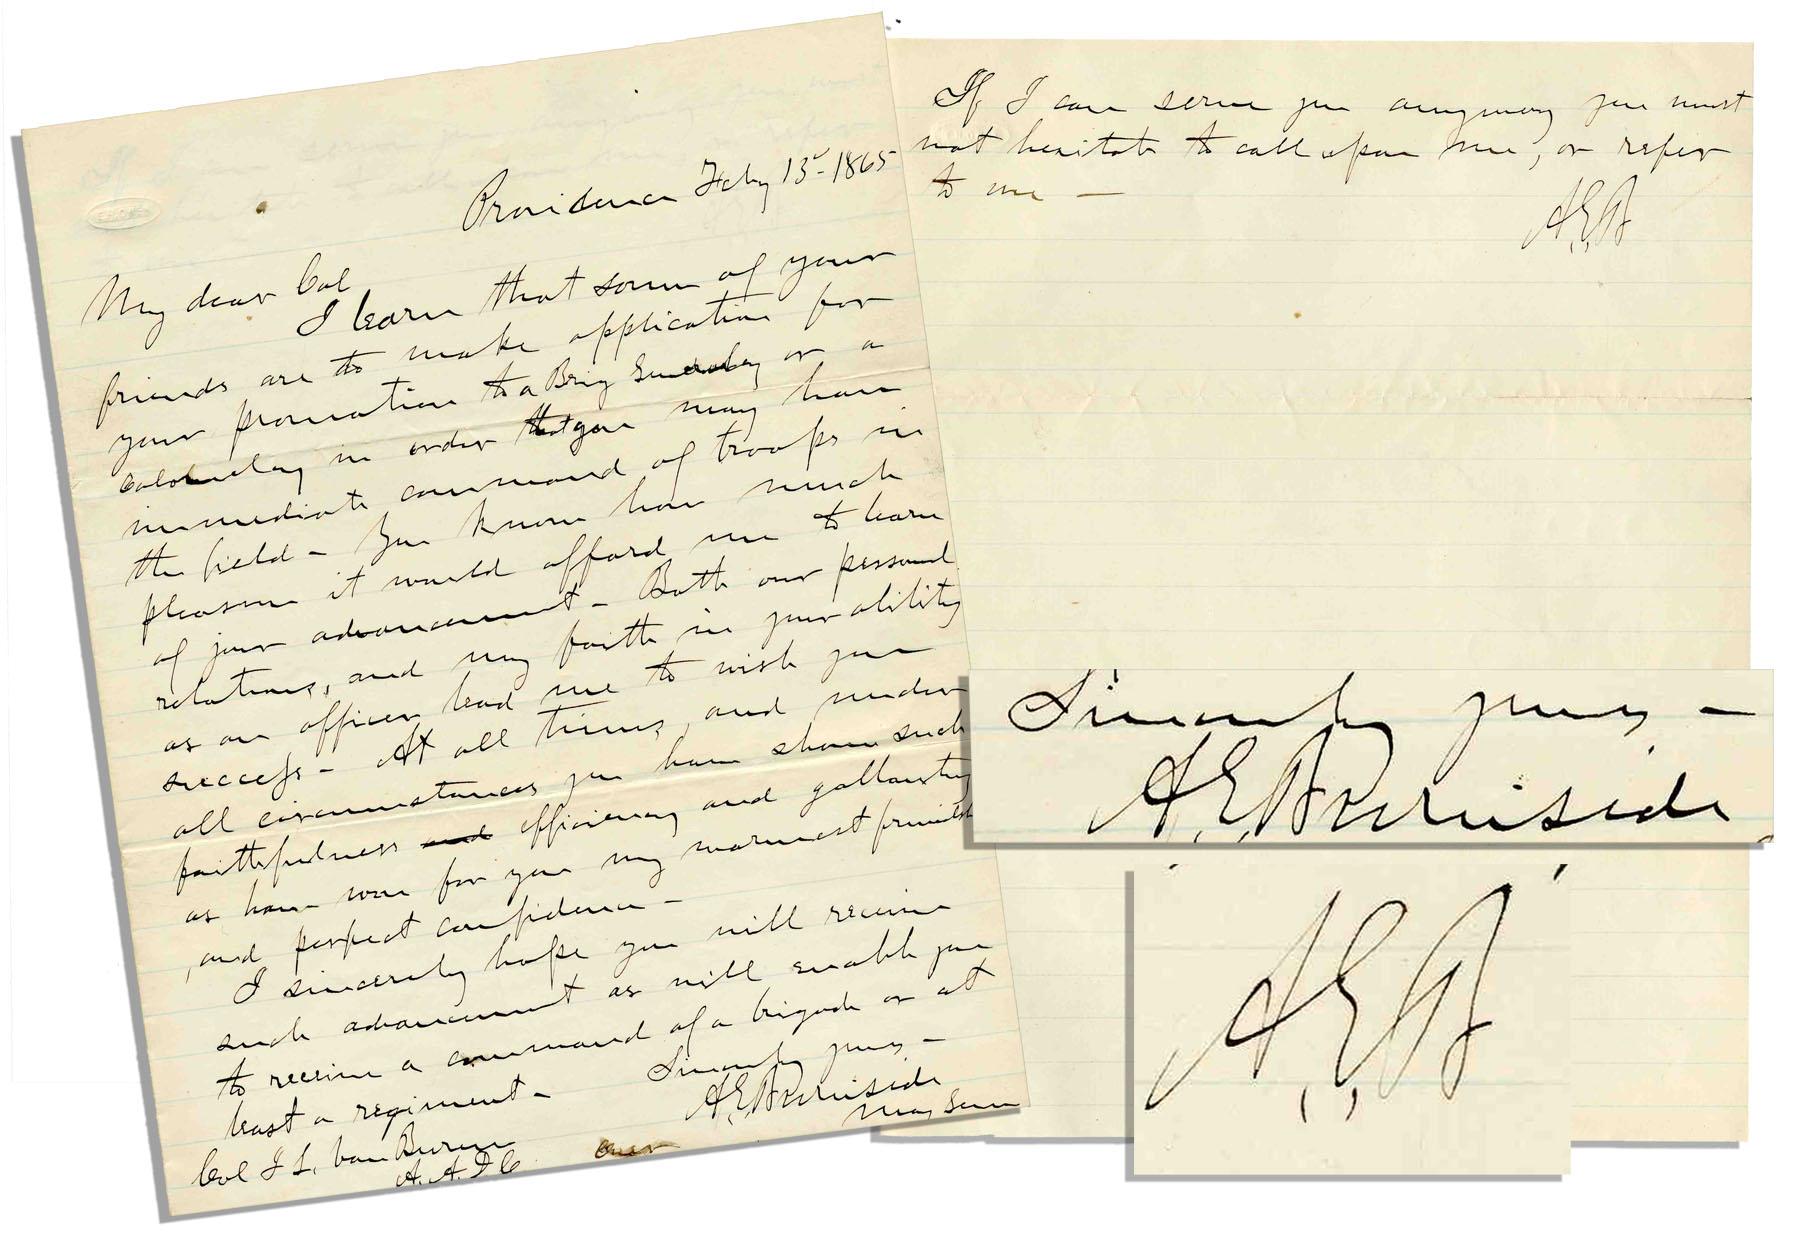 Providence Feby 13- 1865
My dear Col
I learn that some of your
friends are to make application for
your promotion to a Brig Generalcy or a
Colonelcy in order that you may have
immediate command of troops in
the field - You know how much
pleasure it would afford me to learn
of your advancement - Both our personal
relations, and my faith in your ability
as an officer lead me to wish you
success - At all times, and under
all circumstances you have shown such
faithfulness and efficiency and gallantry
as have won for you my warmest friendship
and perfect confidence -
I sincerely hope you will receive
such advancement as will enable you
to receive a command of a brigade or at
least a regiment -
Sincerely yours -
A.E. Burnside
Maj Genl
Col J L. Van Buren
A.A.D.C
Over
If I can serve you anyway you must
not hesitate to call upon me, or refer
to me -
A.E.B
Sincerely yours -
A.E. Burnside
A.E.B